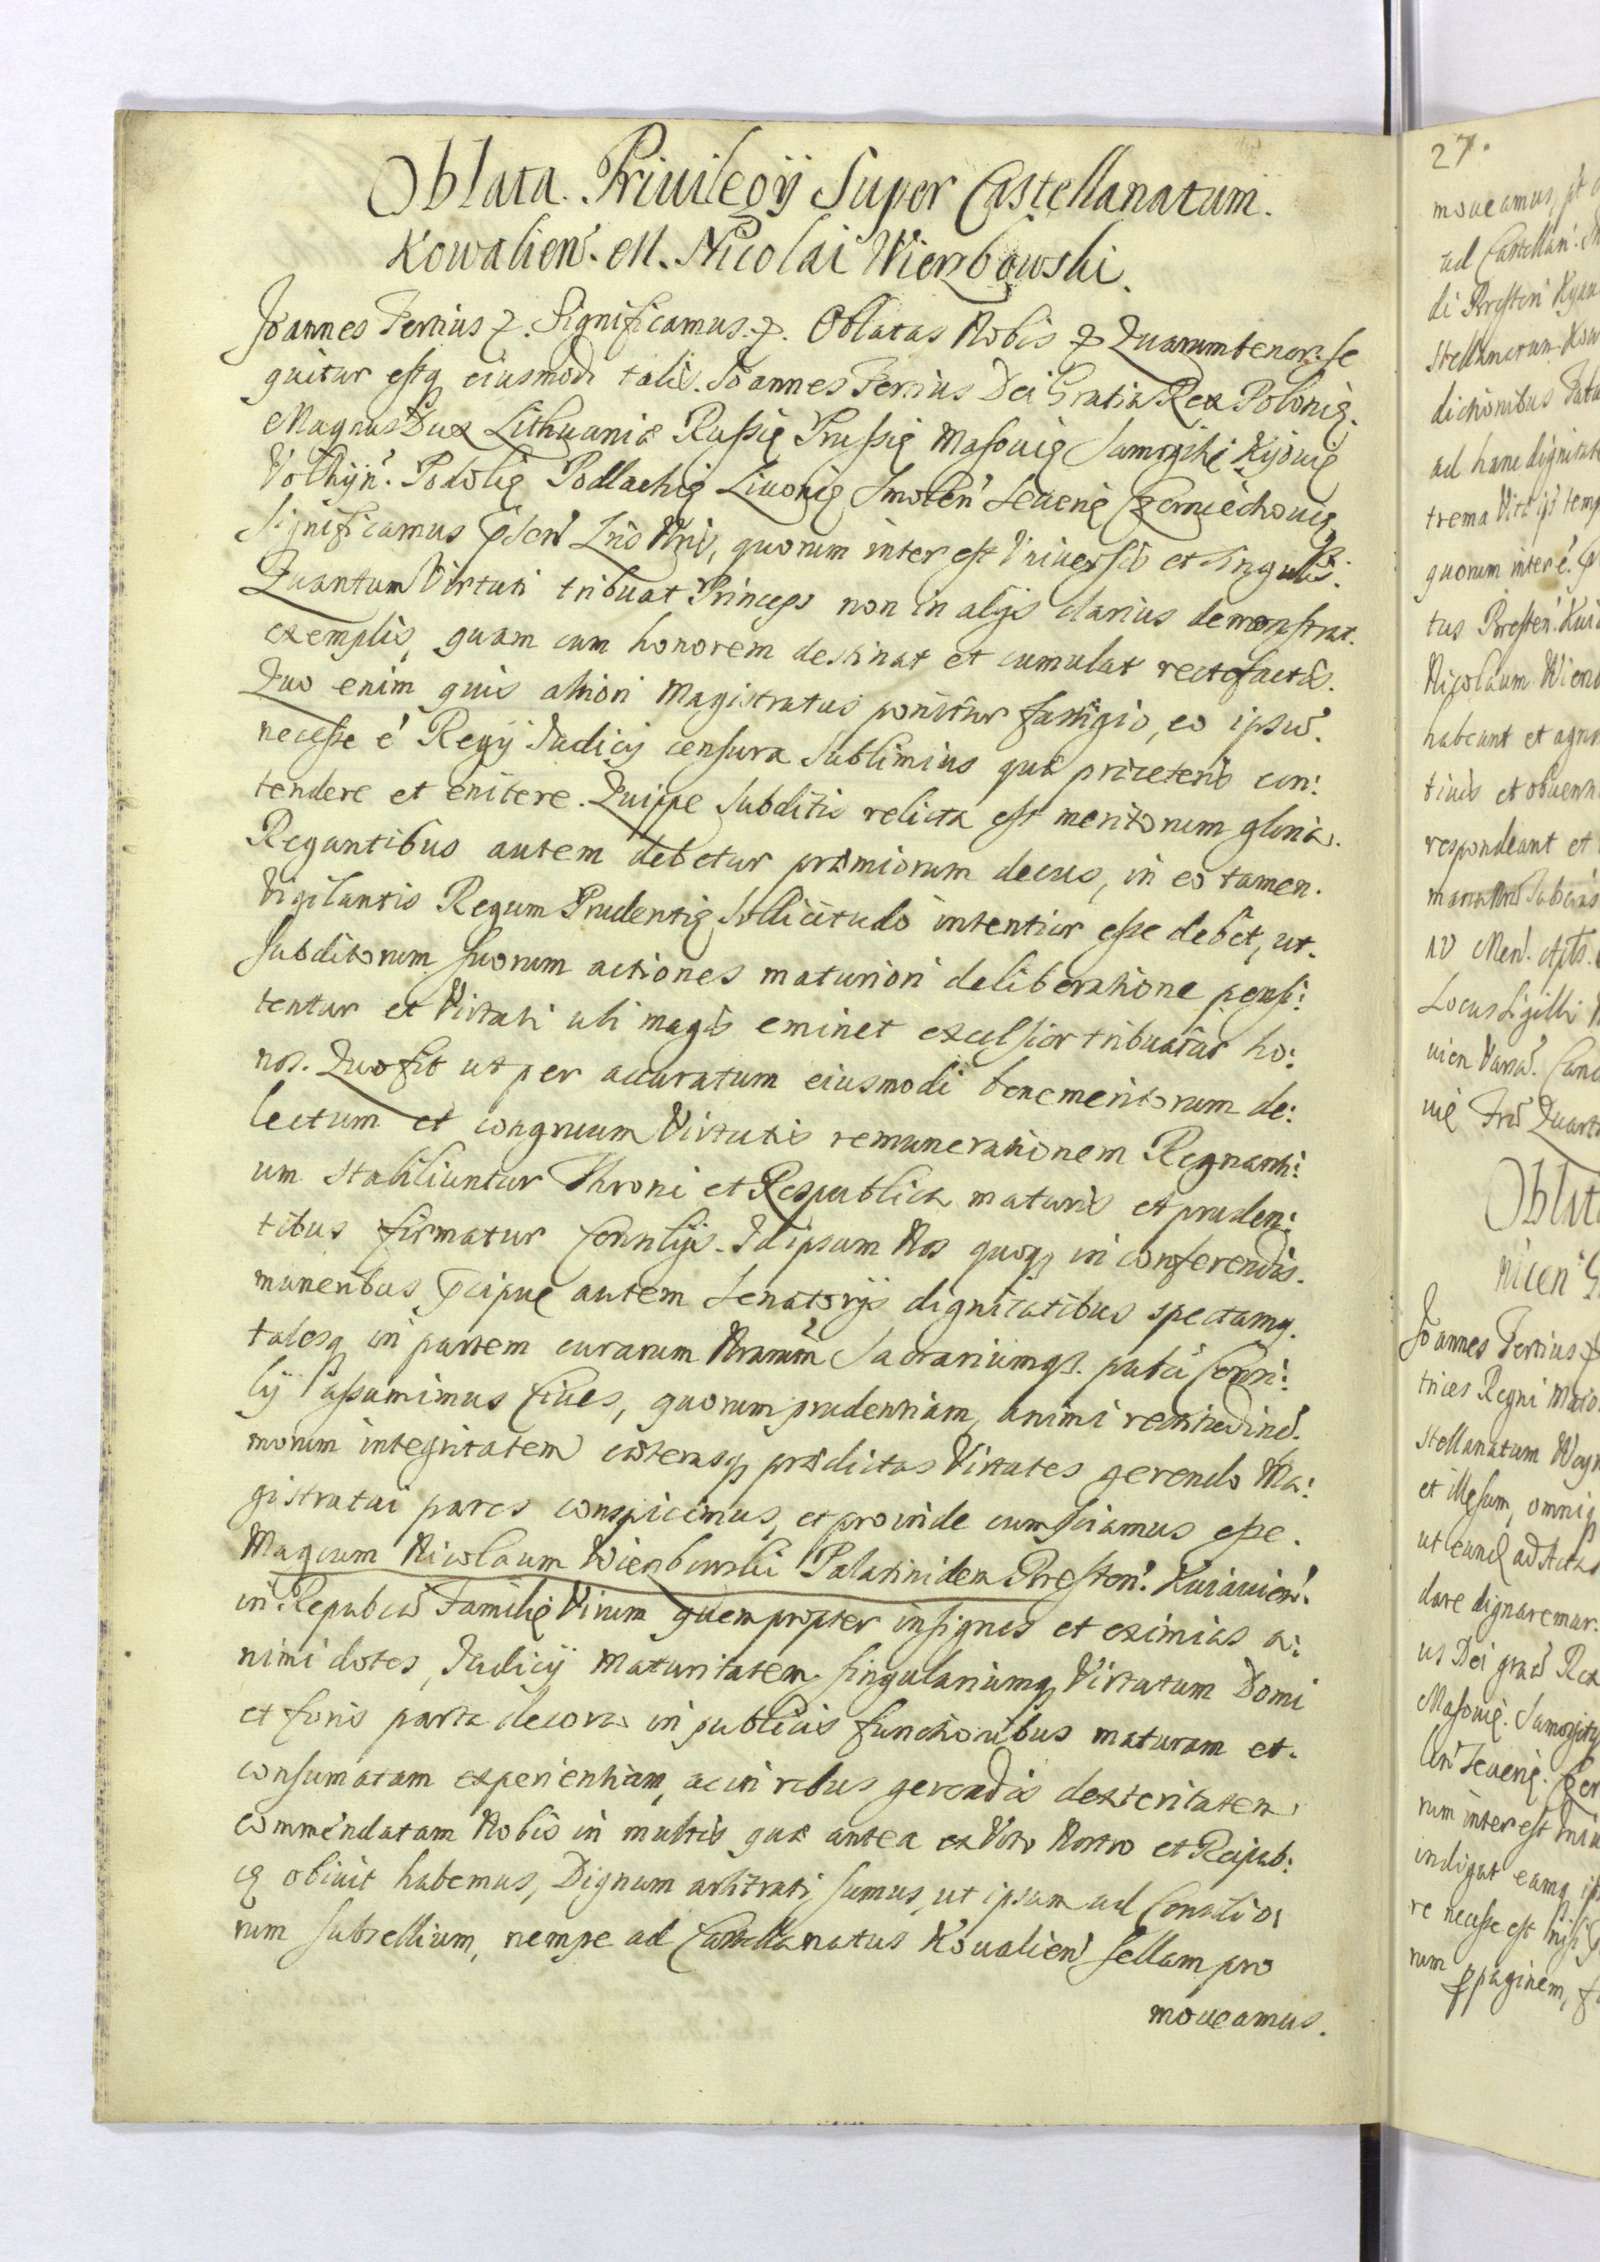 Oblata Privilegij Super Castellanatum.
Kowalien. M. Nicolai Wierzbowski.
Joannes Tertius &. Significamus &. Oblatas Nobis & Quarum tenor se
quitur estq eiusmodi talis. Joannes Tertius Dei Gratia Rex Polonię.
Magnus Dux Lithuaniæ Russię Prussię Masovię Samogitię Kijovię
Volhyn. Podolię Podlachię Livonię Smolen Severię Czerniechovię
Significamus pñtibus Lris Nris, quorum interest Universis et singulis.
Quantum Virtuti tribuat Princeps non in alijs clarius demonstrat.
exemplis, quam cum honorem destinat et cumulat rectefactis.
Quo enim quis altiori Magistratus ponitur fastigio, eo ipsum.
necesse é Regij Judicij censura sublimius quã præteteris con:
tendere et enitere. Quippe subditis relicta est meritorum gloria.
Regantibus autem debetur præmiorum decus, in eo tamen.
Vigilantis Regum Prudentię sollicitudo intentior esse debet, ut.
subditorum suorum actiones maturiori deliberatione pensi:
tentur et Virtuti ubi magis eminet excelsior tribuatur ho:
nos. Quo fit ut per accuratum eiusmodi benemeritorum de:
lectum et congruum Virtutis remunerationem Regnanti:
um stabiliuntur Throni et Respublica maturis et pruden:
tibus firmatur Consilijs. Id ipsum Nos quoq in conferendis.
muneribus pcipuę autem Senatorijs dignitatibus spectamq.
talesq in partem curarum Nrarum Sacrariumq. publici Consi:
lij assumimus Cives, quorum prudentiam, animi rectitudinẽ.
morum integritatem cæterasq prædictas Virtutes gerendo Ma:
gistratui pares conspicimus, et proinde cum sciamus esse.
Magcum Nicolaum Wierzbowski Palatinidem Bresten. Kuiavien.
in Republica Familię Virum quem propter insignes et eximias a:
nimi dotes, Judicij Maturitatem singulariumq Virtutum Domi
et foris parta decora in publicis functionibus maturam et.
consumatam experientiam, ac in rebus gerendis dexteritatem
commendatam Nobis in multis quæ antea ex Voto Nostro et Reipub:
cę obivit habemus, Dignum arbitrati sumus, ut ipsum ad Consilio:
rum subsellium, nempe ad Castellanatus Kovalien sellam pro
moveamus.
27.
moveamus, pt
ad Castellan.
di Bresten Kyau
stellanatum Kow
dictionibus
ad hanc dignitat
trema Vitę ipś temp
quorum inter é.
tus Bresten. Kui
Nicolaum Wierz
habeant et agno
tiuis et obvent
respondeant et
manu Nrã Subscrips
no Men. Apls.
Locus Sigilli
vien Varsa. Canc
vię Quart
Oblat
nicen G
Joannes Tertius &
trices Regni Maio
stellanatum Woyn
et illęsum, omniq
ut eand ad Acta
dare dignaremur.
us Dei grã Rex
Masovię. Samogity
len Severię. Czer
rum interest Univ
indigat eamq ip
re necesse est nisi
rum
ppaginem, f